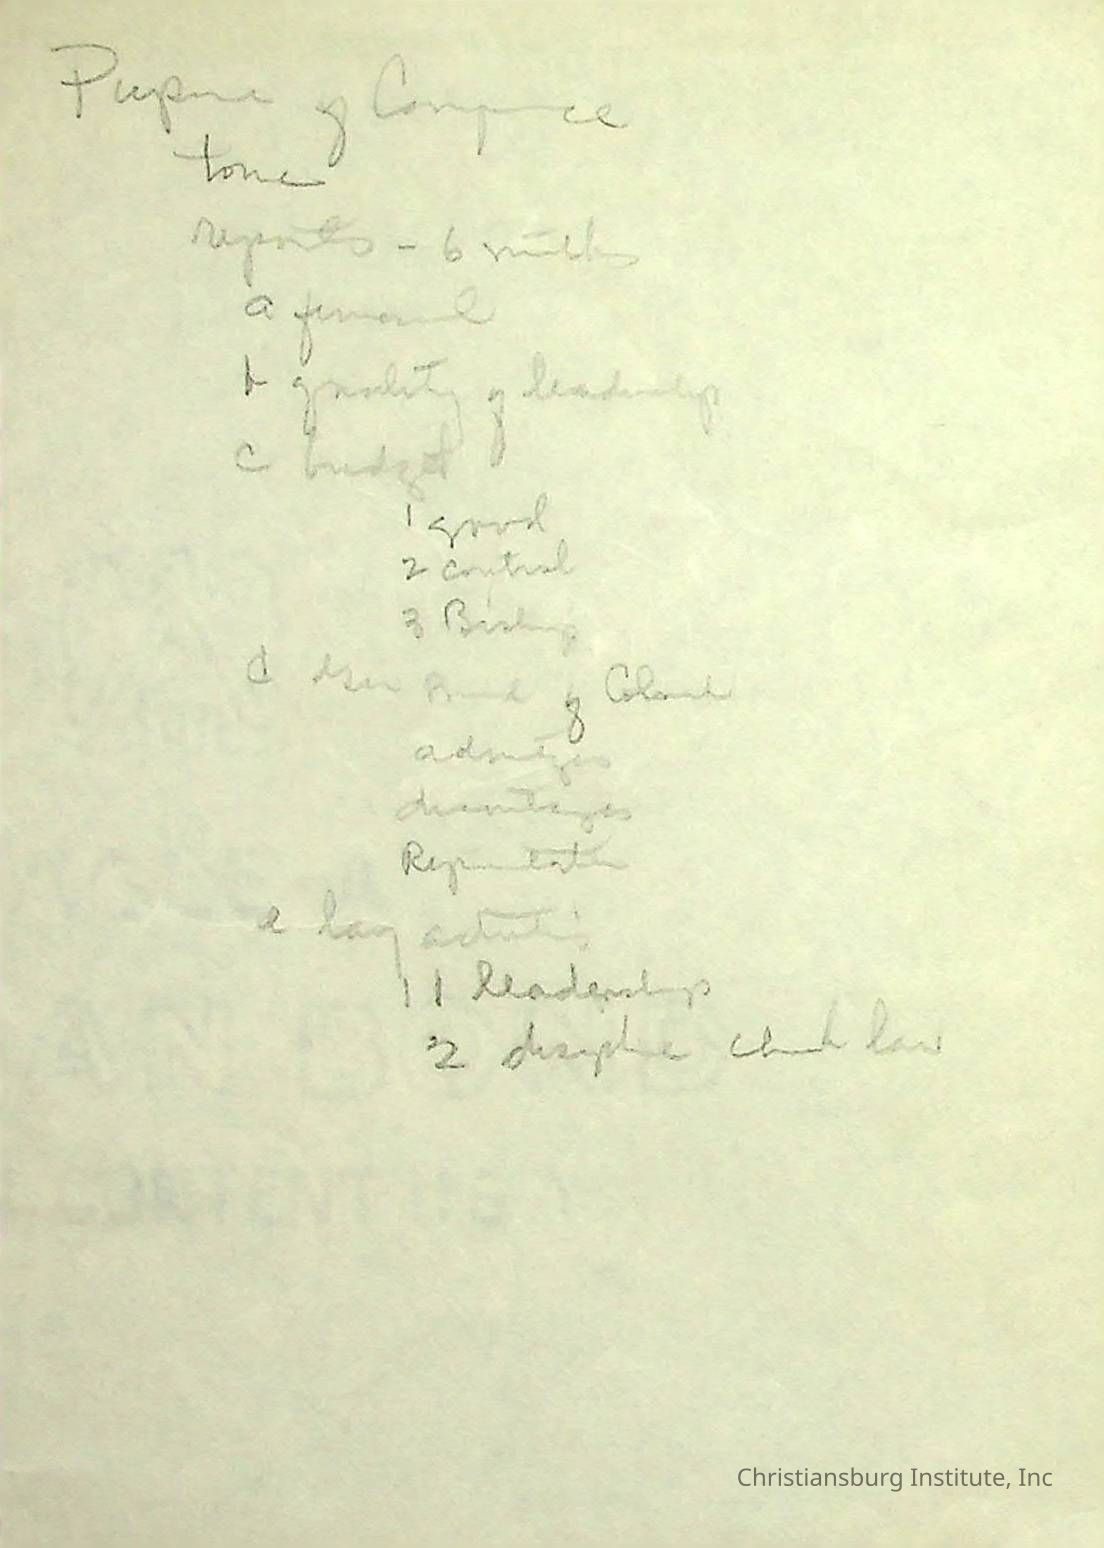 Purpose of Conference
tone
reports - 6 months
a financial
b quality of leadership
c budget
1 good
2 control
3 Bishop
d of
advantages
disadvantages
Representation
e lay activities
1 1 leadership
2 discipline church law
Christiansburg Institute, Inc